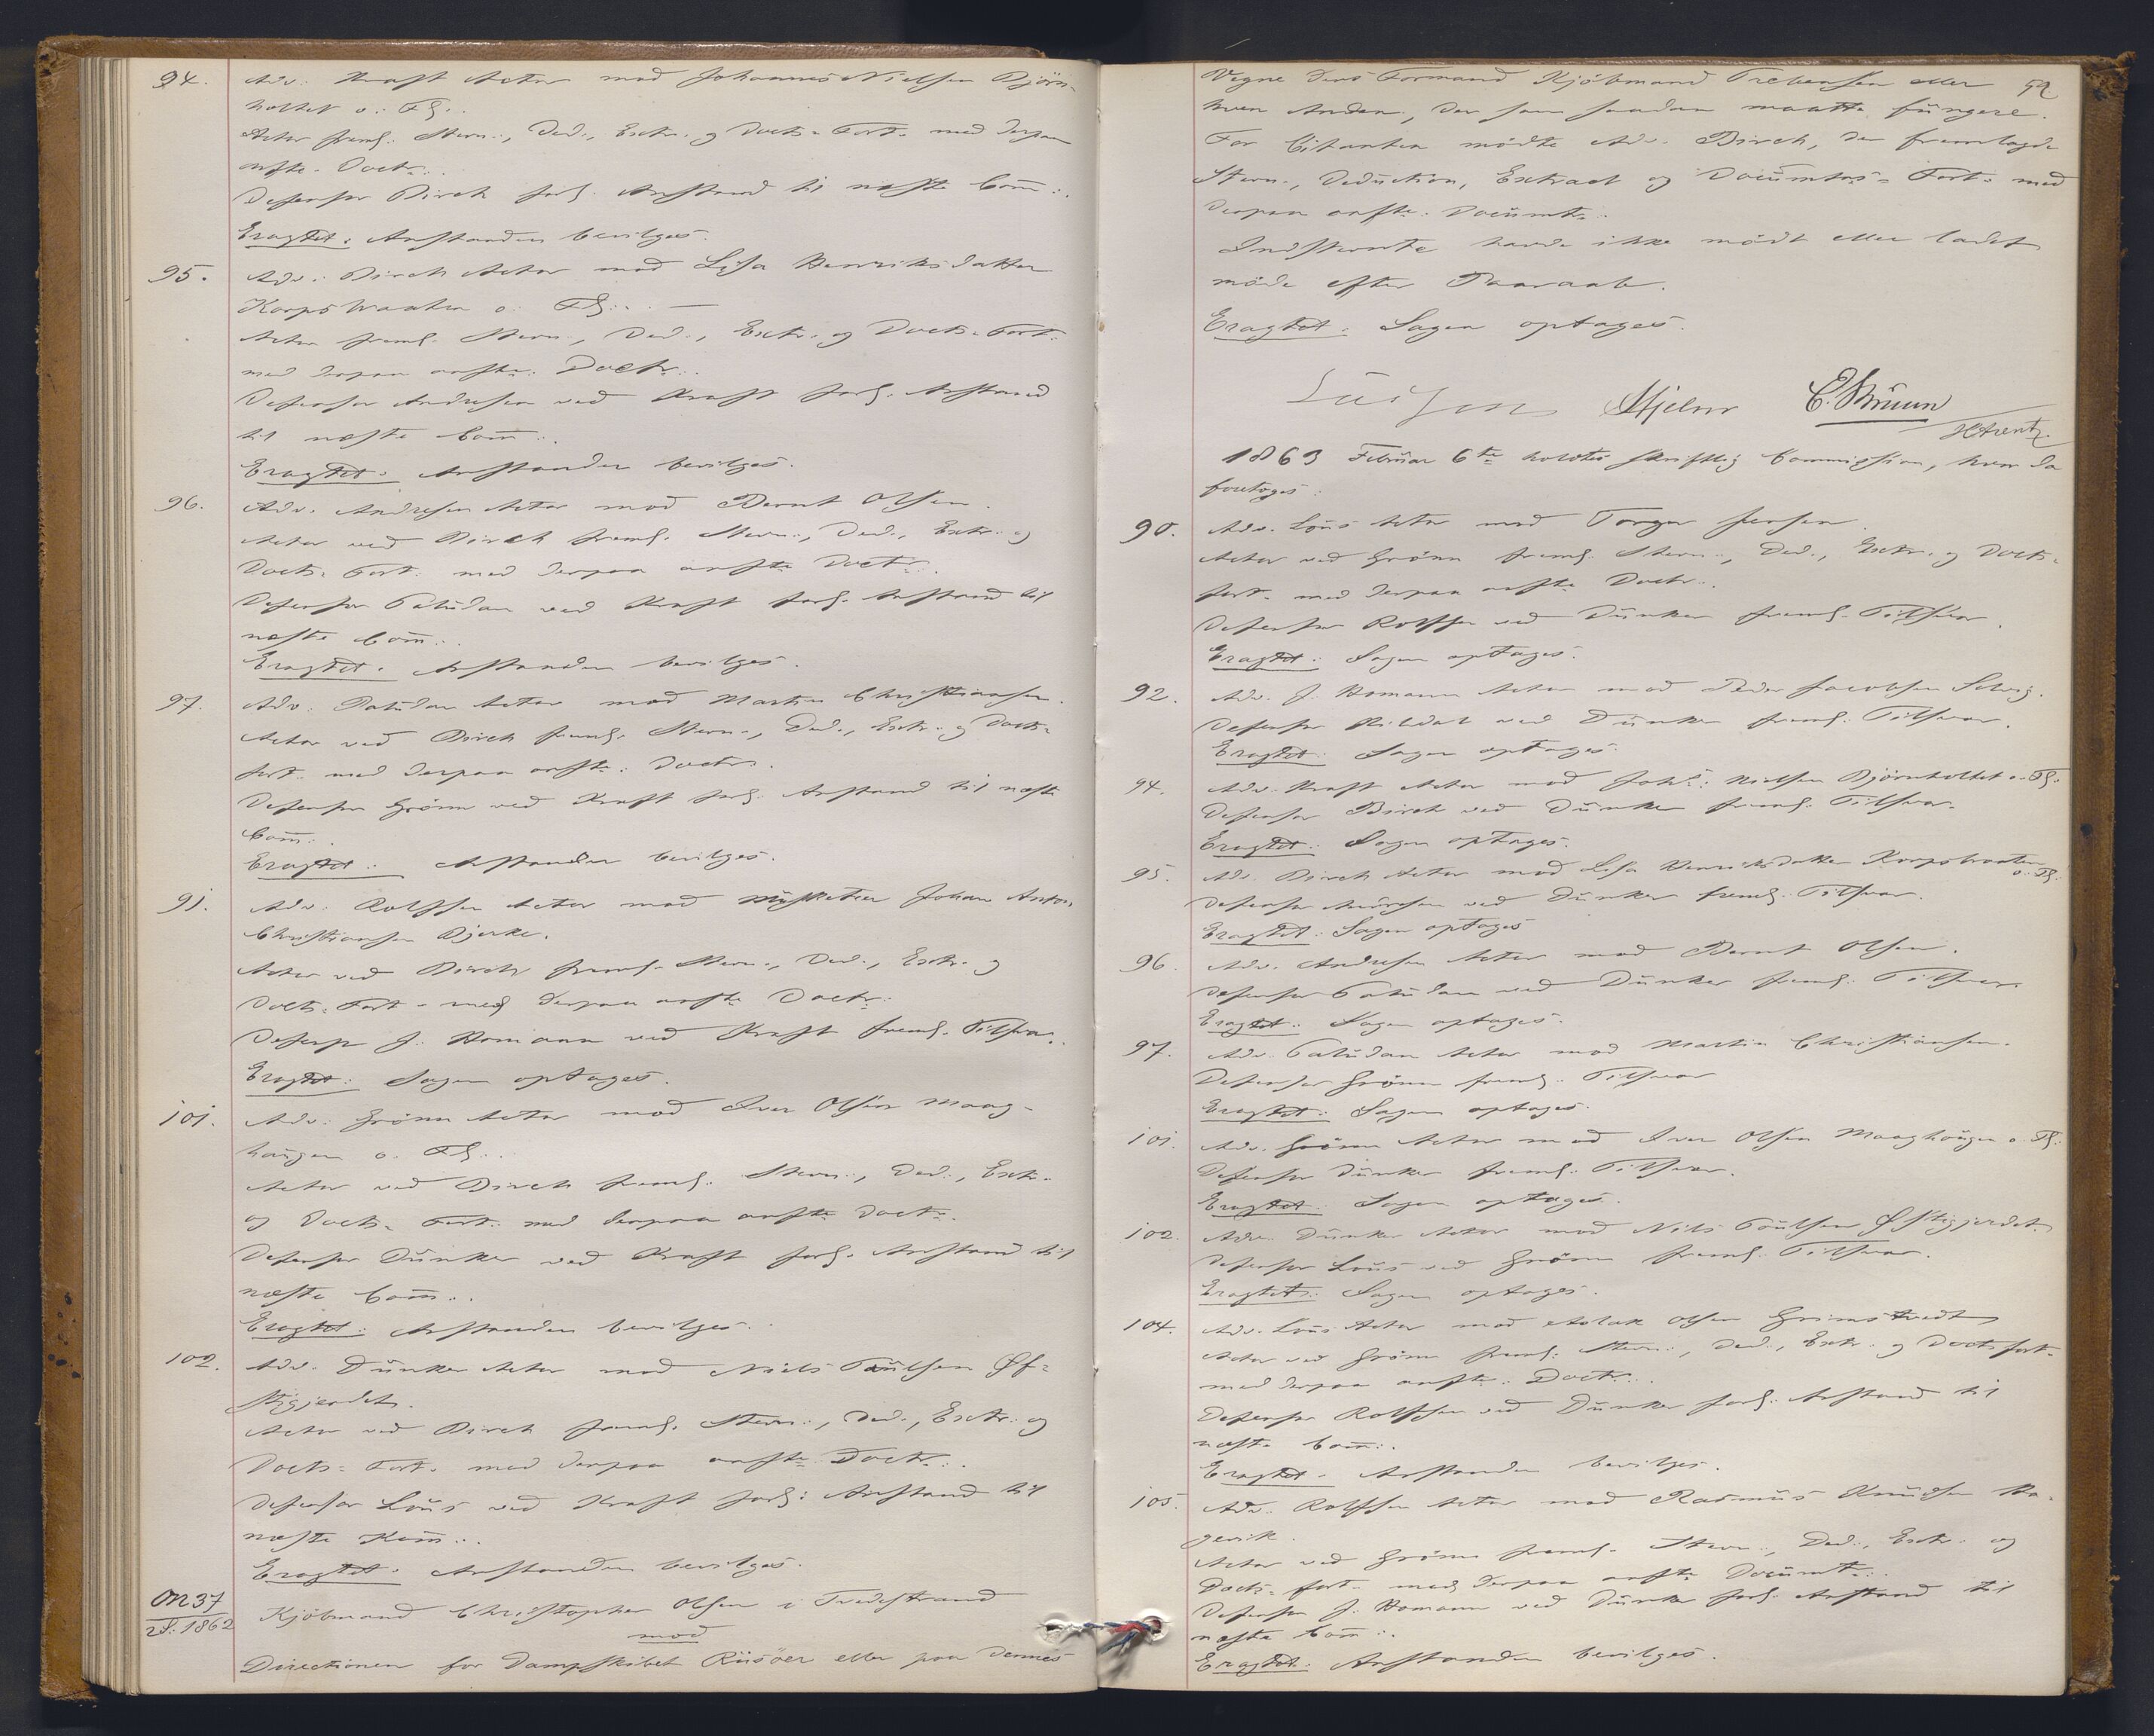 94. Adv. Kraft Actor mod Johannes Nielsen Bjørn-
holtet o. Fl..
Actor freml. Stevn., Ded., Extr. og Docts. Fort. med derpaa
anførte Doctr..
Defensor Birch forl. Anstand til næste Comm:.
Eragtet: Anstanden bevilges.
95. Adv. Birch Actor mod Lisa Henriksdatter
Korpshaaten o. Fl:.
Actor freml. Stevn., Ded., Extr. og Docts. Fort.
med derpaa anførte Doctr..
Defensor Andresen ved Kraft forl. Anstand
til næste Comm:.
Eragtet: Anstanden bevilges.
96. Adv. Andresen Actor mod Bernt Olsen.
Actor ved Birch freml. Stevn., Ded., Extr. og
Docts. Fort. med derpaa anførte Doctr..
Defensor Paludan ved Kraft forl. Anstand til
næste Comm:.
Eragtet: Anstanden bevilges.
97. Adv. Paludan Actor mod Martin Christiansen.
Actor ved Birch freml. Stevn., Ded., Extr. og Docts.
fort. med derpaa anførte Doctr.
Defensor Grønn ved Kraft forl. Anstand til næste
Comm:.
Eragtet: Anstanden bevilges.
91. Adv. Rolfsen Actor mod Musketeer Johan Anton
Christiansen Bjerke.
Actor ved Birch freml. Stevn., Ded., Extr. og
Docts. Fort. med derpaa anførte Doctr:
Defensor J. Homann ved Kraft freml. Tilsvar.
Eragtet: Sagen optages.
101. Adv. Grønn Actor mod Iver Olsen Maag-
haugen o. Fl..
Actor ved Birch freml. Stevn., Ded., Extr.
og Docts. Fort. med derpaa anførte Doctr.
Defensor Dunker ved Kraft forl. Anstand til
næste Comm:.
Eragtet: Anstanden bevilges.
102. Adv. Dunker Actor mod Niels Poulsen Øf-
stigjerdet.
Actor ved Birch freml. Stevn., Ded., Extr. og
Docts. Fort. med derpaa anførte Doctr..
Defensor Lous ved Kraft forl. Anstand til
næste Komm:.
Eragtet: Anstanden bevilges.
No 37
2 S. 1862 Kjøbmand Christopher Olsen i Tvedestrand
mod
Directionen for Dampskibet Riisöer eller paa dennes
52
Vegne dens Formand Kjøbmand Prebensen eller
hvem Anden, der som saadan maatte fungere.
For Citanten mödte Adv. Birch, der fremlagde
Stevn., Deduction, Extract og Documts. Fort. med
derpaa anførte Documt.
Indstevnte havde ikke mødt eller ladet
møde efter Paaraab.
Eragtet: Sagen optages.
Lasson Hjelm C. Bruun
HArentz
1863 Februar 6te holdtes skriftlig Commission, hvor da
foretoges:
90. Adv. Lous Actor mod Torger Jensen.
Actor ved Grønn freml. Stevn., Ded., Extr. og Docts.
fort. med derpaa anførte Doctr..
Defensor Rolfsen ved Dunker freml. Tilsvar.
Eragtet: Sagen optages.
92. Adv. J. Homann Actor mod Peder Jacobsen
Defensor Kildal ved Dunker freml. Tilsvar.
Eragtet: Sagen optages.
94. Adv. Kraft Actor mod Johs. Nielsen Bjørnholtet o. Fl.
Defensor Birch ved Dunker freml. Tilsvar.
Eragtet: Sagen optages.
95. Adv. Birch Actor mod Lisa Henriksdatter Korpshaaten
o. Fl.
Defensor Andresen ved Dunker freml. Tilsvar.
Eragtet: Sagen optages
96. Adv. Andresen Actor mod Bernt Olsen.
Defensor Paludan ved Dunker freml. Tilsvar.
Eragtet: Sagen optages.
97. Adv. Paludan Actor mod Martin Christiansen.
Defensor Grønn freml. Tilsvar
Eragtet: Sagen optages.
101. Adv. Grønn Actor mod Iver Olsen Maaghaugen o. Fl.
Defensor Dunker freml. Tilsvar.
Eragtet: Sagen optages.
102. Adv. Dunker Actor mod Nils Poulsen Øfstigjerdet.
Defensor Lous ved Grønn freml. Tilsvar.
Eragtet: Sagen optages.
104. Adv. Lous Actor mod Aslak Olsen Grimstvedt
Actor ved Grønn freml. Stevn., Ded., Extr. og Docts fort.
med derpaa anførte Doctr..
Defensor Rolfsen ved Dunker forl. Anstand til
næste Comm:.
Eragtet. Anstanden bevilges.
105. Adv. Rolfsen Actor mod Rasmus Knudsen Ha-
gevik.
Actor ved Grønn freml. Stevn., Ded., Extr. og
Docts. fort. med derpaa anførte Documt..
Defensor J. Homann ved Dunker forl. Anstand til
næste Comm:.
Eragtet: Anstanden bevilges.